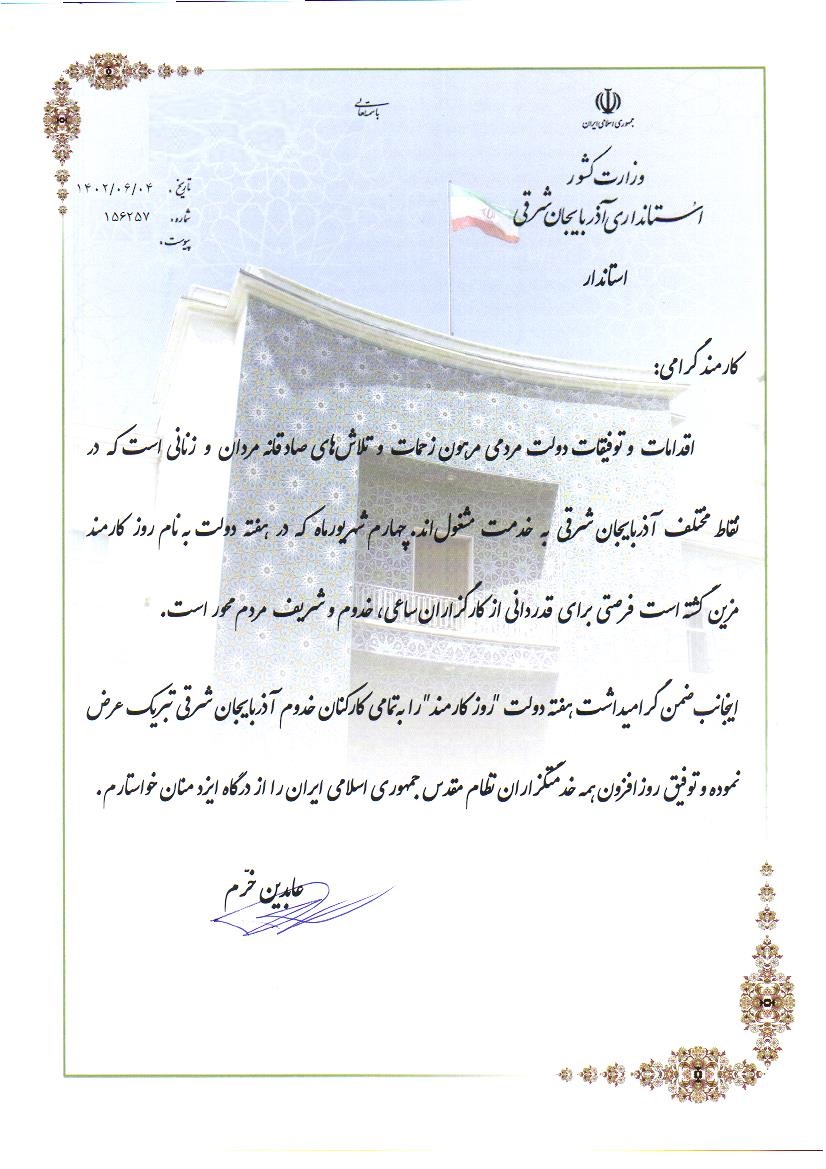 باسمه‌تعالی
جمهوری اسلامی ایران
وزارت کشور
استانداری آذربایجان شرقی
استاندار
تاریخ: ۱۴۰۲/۰۶/۰۴
شماره: ۱۵۶۲۵۷
پیوست:
کارمند گرامی:
اقدامات و توفیقات دولت مردمی مرهون زحمات و تلاش‌های صادقانه مردان و زنانی است که در
نقاط مختلف آذربایجان شرقی به خدمت مشغول‌اند. چهارم شهریورماه که در هفته دولت به نام روز کارمند
مزین گشته است فرصتی برای قدردانی از کارگزاران ساعی، خدوم و شریف مردم محور است.
اینجانب ضمن گرامیداشت هفته دولت "روز کارمند" را به تمامی کارکنان خدوم آذربایجان شرقی تبریک عرض
نموده و توفیق روزافزون همه خدمتگزاران نظام مقدس جمهوری اسلامی ایران را از درگاه ایزد منان خواستارم.
عابدین خرّم